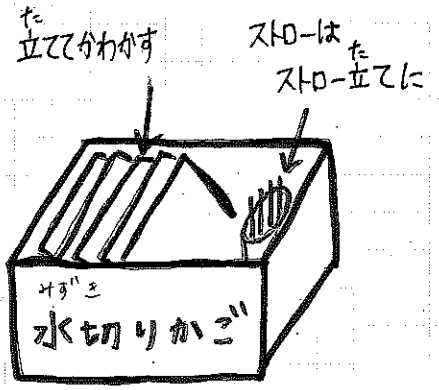 た
立ててかわかす
ストローは
た
ストロー立てに
みずき
水切りかご